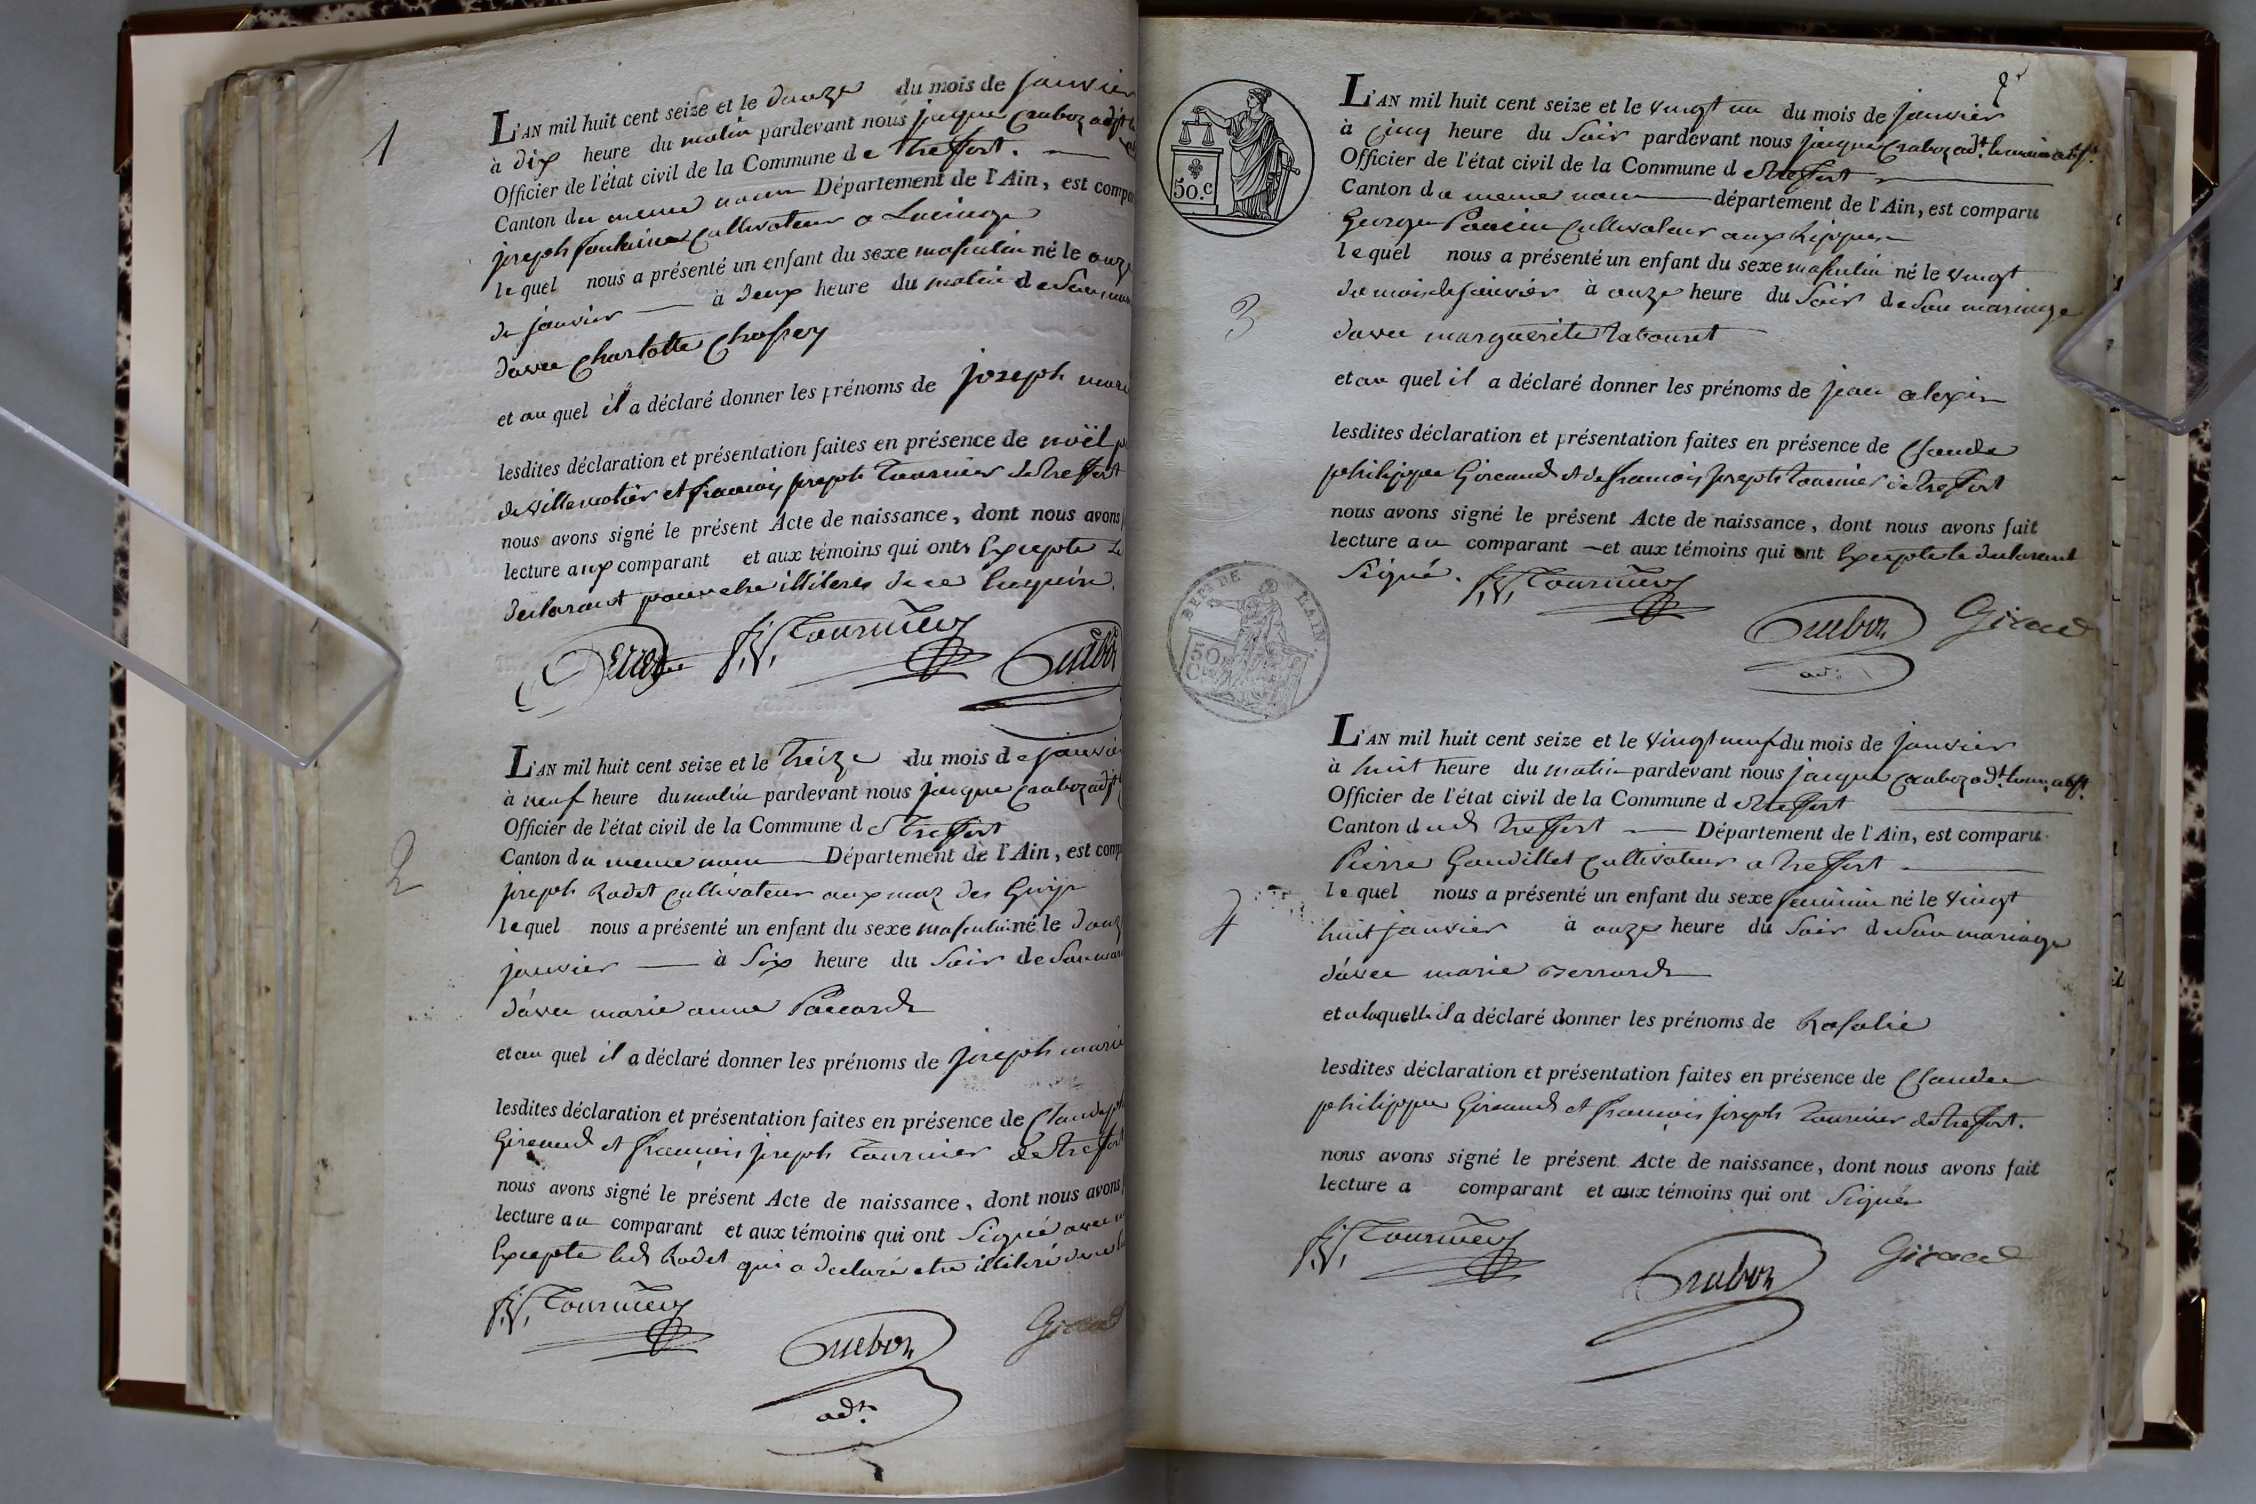 1
L'AN mil huit cent seize et le douze du mois de janvier
à dix heure du matin pardevant nous jacque Craboz adjt
Officier de l'état civil de la Commune de treffort.
Canton du meme nom Département de l'Ain, est compa
joseph fontaine Cultivateur a
le quel nous a présenté un enfant du sexe masculin né le onze
de janvier à deux heure du matin de son
davec Charlotte
et au quel il a déclaré donner les prénoms de joseph marie
lesdites déclaration et présentation faites en présence de noël
de villemotier et francois joseph Tournier de treffort
nous avons signé le présent Acte de naissance, dont nous avons
lecture aux comparant et aux témoins qui ont Excepté Le
declarant pour etre illiteré de ce Enquérir.
f. j. Tournier
L'AN mil huit cent seize et le Treize du mois de janvier
à neuf heure du matin pardevant nous jacque Craboz adjt
Officier de l'état civil de la Commune de Treffort
Canton du meme nom Département de l'Ain, est comp
2
joseph Rodet Cultivateur aux maz des
le quel nous a présenté un enfant du sexe masculin né le douz
janvier à Six heure du Soir de Son mari
davec marie anne Paccard
et au quel il a déclaré donner les prénoms de joseph marie
lesdites déclaration et présentation faites en présence de Claude
Giraud et francois joseph Tournier de treffort
nous avons signé le présent Acte de naissance, dont nous avons
lecture au comparant et aux témoins qui ont Signé avec
Excepté led Rodet qui a declaré etre illiteré
f. j. Tournier
Craboz Giraud
adt.
2
L'AN mil huit cent seize et le vingt un du mois de janvier
à Cinq heure du Soir pardevant nous jacque Craboz adt. le maire abst.
Officier de l'état civil de la Commune de treffort
50.c
Canton du meme nom département de l'Ain, est comparu
George Poncin Cultivateur aux
le quel nous a présenté un enfant du sexe masculin né le vingt
du mois de janvier à onze heure du Soir de Son mariage
3
davec marguerite Tabouret
et au quel il a déclaré donner les prénoms de jean alexis
lesdites déclaration et présentation faites en présence de Claude
philippe Giraud et de francois joseph tournier de treffort
nous avons signé le présent Acte de naissance, dont nous avons fait
lecture au comparant et aux témoins qui ont Excepté le declarant
Signé.
DEPT DE L'AIN
50
f. j. Tournier
Craboz Giraud
adt.
L'AN mil huit cent seize et le vingt neuf du mois de janvier
à huit heure du matin pardevant nous jacque Craboz adt. abst.
Officier de l'état civil de la Commune de treffort
Canton dud treffort Département de l'Ain, est comparu
Pierre Gaudillet Cultivateur a treffort
le quel nous a présenté un enfant du sexe feminin né le vingt
4
huit janvier à onze heure du Soir de Son mariage
davec marie Berrard
et a laquelle il a déclaré donner les prénoms de Rosalie
lesdites déclaration et présentation faites en présence de Claude
philippe Giraud et francois joseph Tournier de treffort.
nous avons signé le présent Acte de naissance, dont nous avons fait
lecture a comparant et aux témoins qui ont Signé
f. j. Tournier
Craboz Giraud